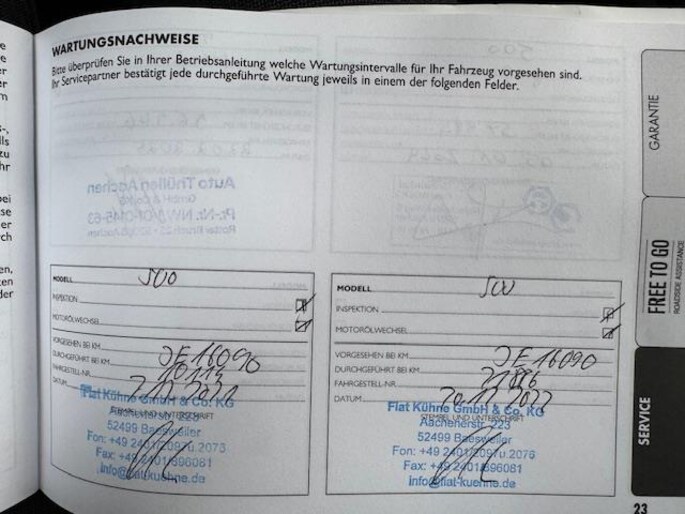 WARTUNGSNACHWEISE
Bitte überprüfen Sie in Ihrer Betriebsanleitung welche Wartungsintervalle für Ihr Fahrzeug vorgesehen sind.
Ihr Servicepartner bestätigt jede durchgeführte Wartung jeweils in einem der folgenden Felder.
MODELL 500
INSPEKTION
MOTORÖLWECHSEL
VORGESEHEN BEI KM
DURCHGEFÜHRT BEI KM JE16090
FAHRGESTELL-NR.
DATUM
STEMPEL UND UNTERSCHRIFT
Fiat Kühne GmbH & Co. KG
Aachenerstr. 223
52499 Baesweiler
Fon: +49 2401/
Fax: +49 2401/896081
info@fiat-kuehne.de
MODELL 500
INSPEKTION
MOTORÖLWECHSEL
VORGESEHEN BEI KM JE16090
DURCHGEFÜHRT BEI KM
FAHRGESTELL-NR.
DATUM 20.12.2022
STEMPEL UND UNTERSCHRIFT
Fiat Kühne GmbH & Co. KG
Aachenerstr. 223
52499 Baesweiler
Fon: +49 2401/
Fax: +49 2401/896081
info@fiat-kuehne.de
GARANTIE
FREE TO GO
ROADSIDE ASSISTANCE
SERVICE
23